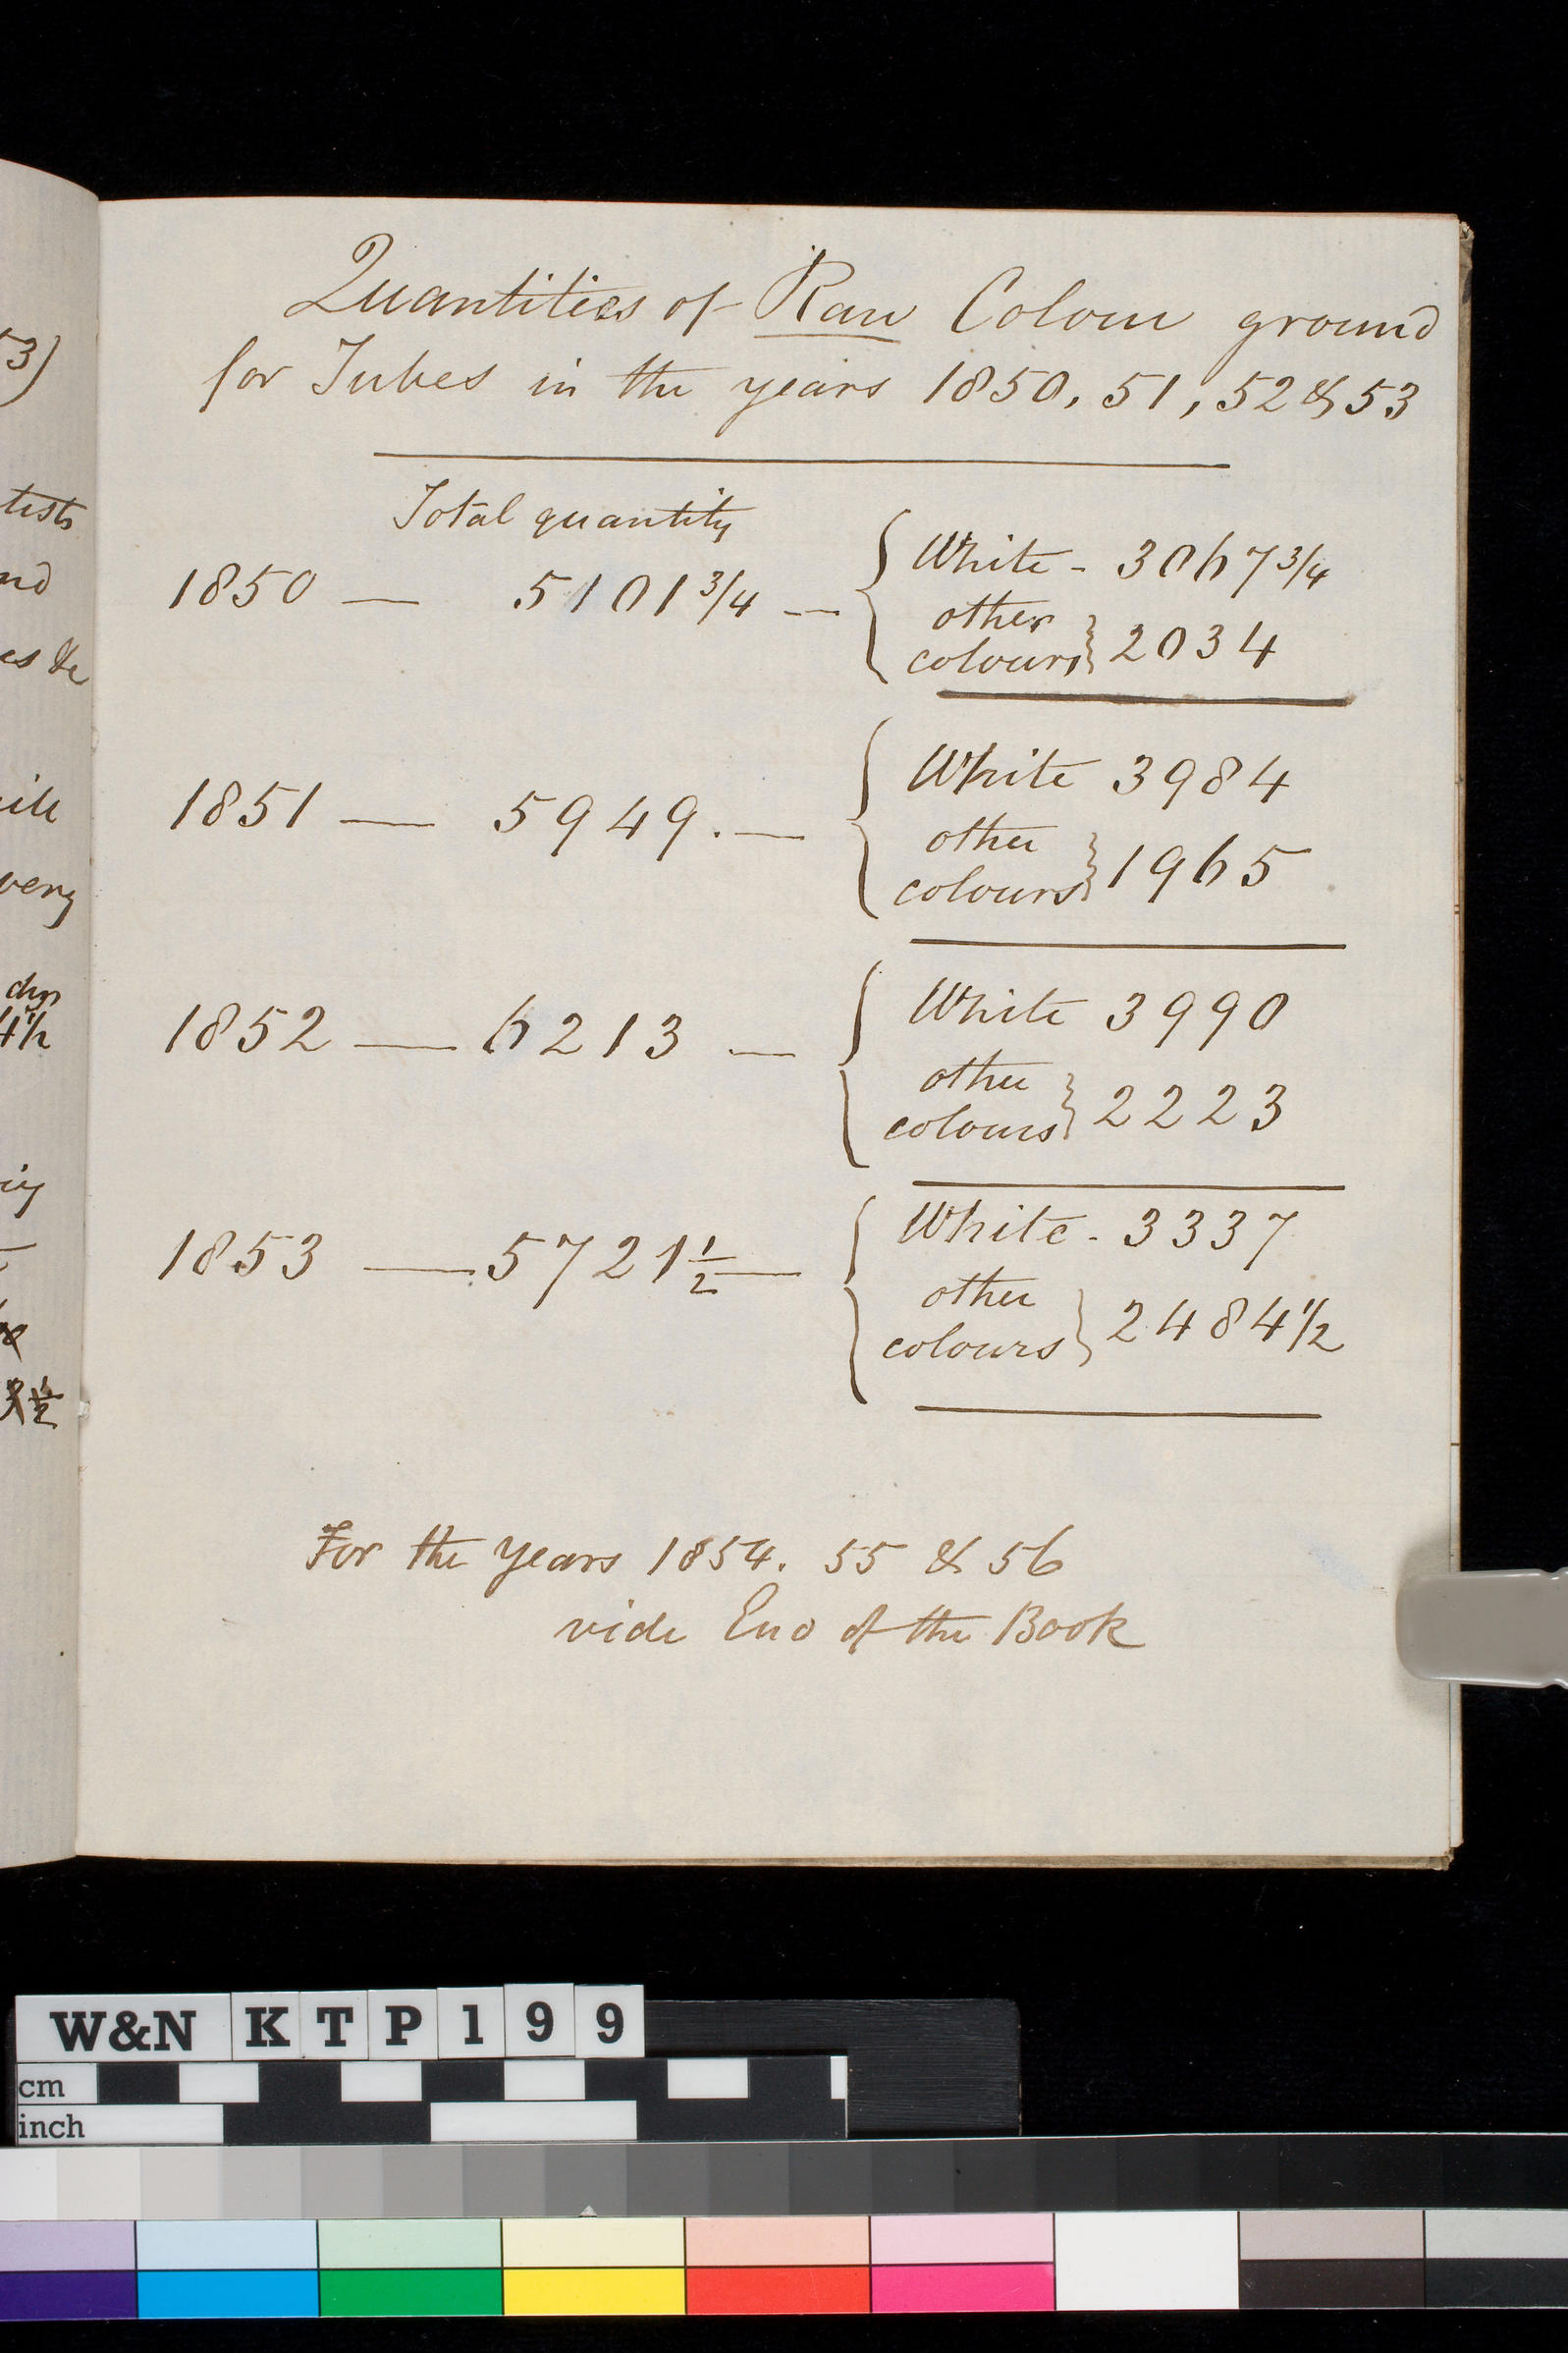 Quantities of Raw Colour ground
for Tubes in the years 1850, 51, 52 & 53
Total quantity
1850 — 5101 3/4 — { White - 3067 3/4
other
colours } 2034
1851 — 5949. — { White 3984
other
colours } 1965
1852 — 6213 — { White 3990
other
colours } 2223
1853 — 5721 1/2 — { White - 3337
other
colours } 2484 1/2
For the years 1854. 55 & 56
vide End of the Book
53)
tists
nd
es &c
very
4 1/2
1/2
W&N KTP199
cm
inch